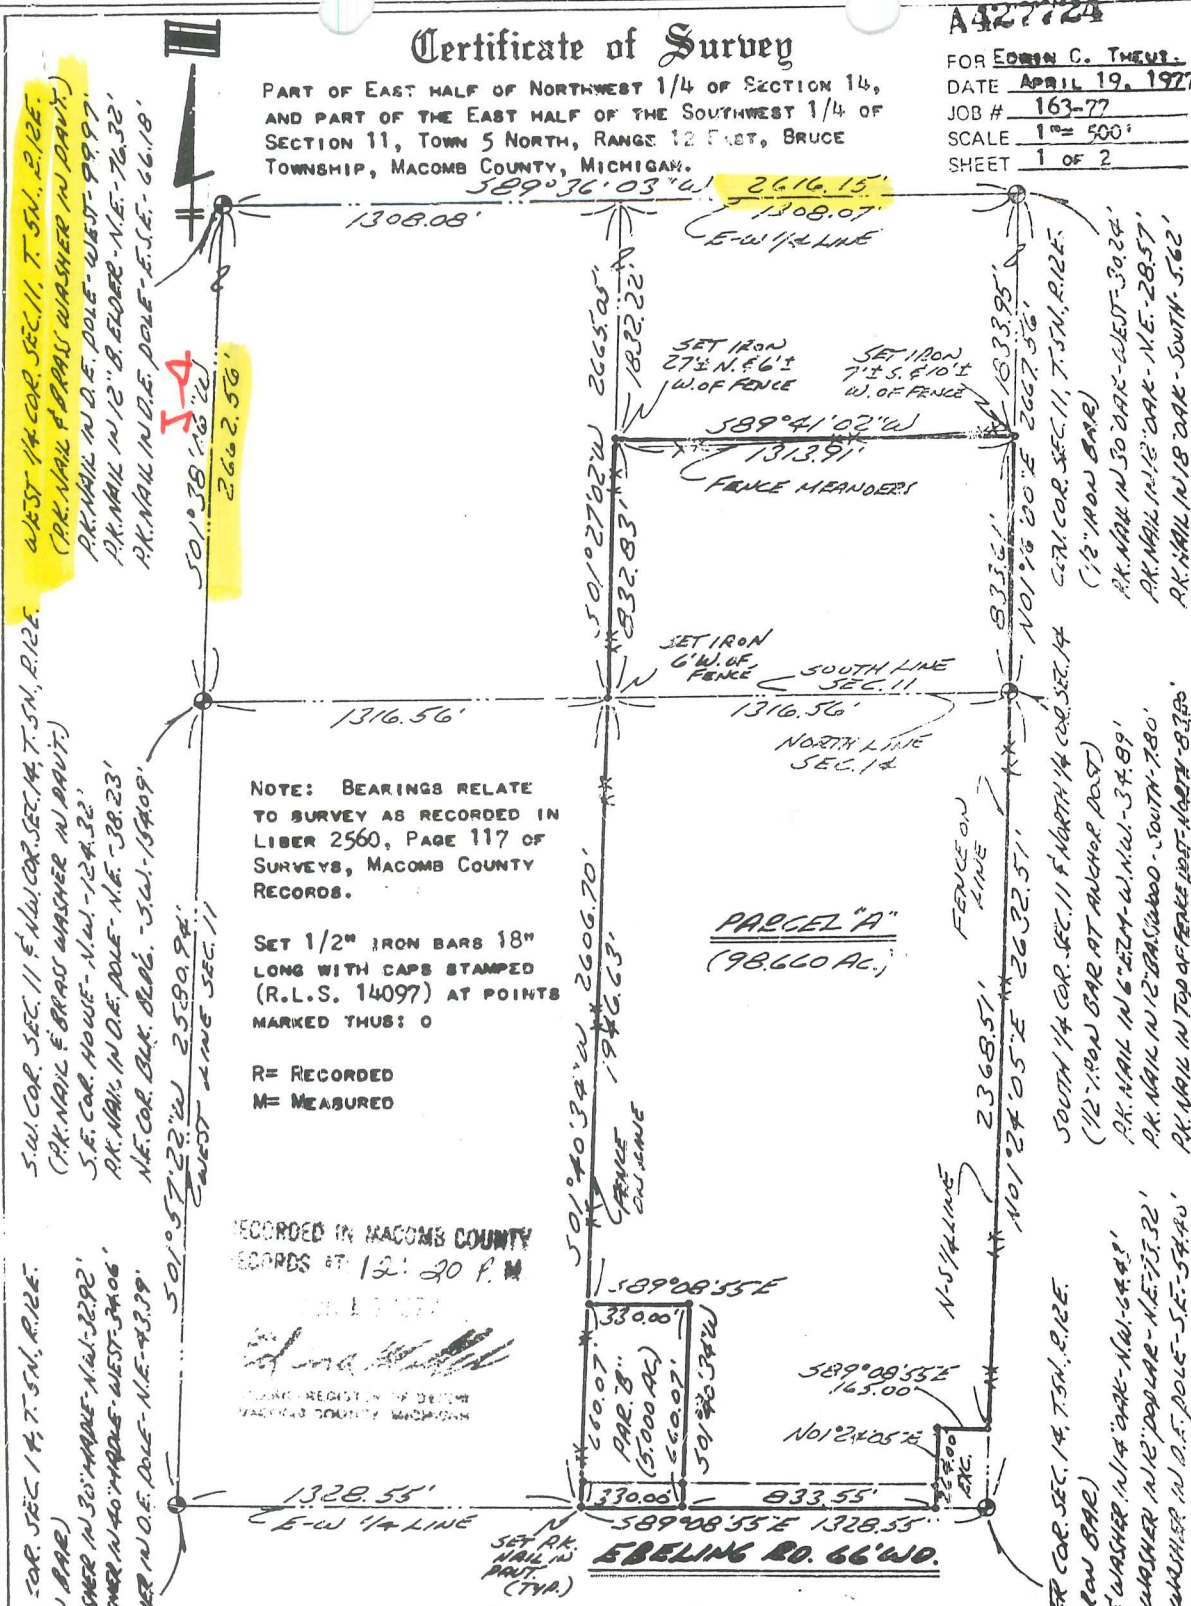 A427724
Certificate of Survey
PART OF EAST HALF OF NORTHWEST 1/4 OF SECTION 14,
AND PART OF THE EAST HALF OF THE SOUTHWEST 1/4 OF
SECTION 11, TOWN 5 NORTH, RANGE 12 EAST, BRUCE
TOWNSHIP, MACOMB COUNTY, MICHIGAN.
FOR EDWIN C. THEUT.
DATE APRIL 19, 1977
JOB # 163-77
SCALE 1"= 500'
SHEET 1 OF 2
WEST 1/4 COR. SEC. 11, T. 5N., R.12E.
(P.K. NAIL & BRASS WASHER IN PAVT.)
P.K. NAIL IN D.E. POLE-WEST-99.97'
P.K. NAIL IN 12" B. ELDER-N.E.-76.32'
P.K. NAIL IN D.E. POLE-E.S.E.-66.18'
S89°36'03"W 2616.15'
1308.08'
1308.07'
E-W 1/4 LINE
I-4
S01°38'16"W
2662.56'
2665.05'
1832.22'
1833.95'
2667.56'
SET IRON
27'± N. & 6'±
W. OF FENCE
SET IRON
7'± S. & 10'±
W. OF FENCE
S89°41'02"W
1313.91'
FENCE MEANDERS
S01°27'02"W
832.83'
833.61'
N01°16'00"E
CEN. COR. SEC. 11, T. 5N., R.12E.
(1/2" IRON BAR)
P.K. NAIL IN 30" OAK-WEST-30.24'
P.K. NAIL IN 12" OAK-N.E.-28.57'
P.K. NAIL IN 18" OAK-SOUTH-5.62'
SET IRON
6' W. OF
FENCE
SOUTH LINE
SEC. 11
1316.56'
1316.56'
NORTH LINE
SEC. 14
S.W. COR. SEC. 11 & N.W. COR. SEC. 14, T. 5N., R.12E.
(P.K. NAIL & BRASS WASHER IN PAVT.)
S.E. COR. HOUSE-N.W.-124.32'
P.K. NAIL IN D.E. POLE-N.E.-38.23'
N.E. COR. BLK. BLDG.-S.W.-154.09'
NOTE: BEARINGS RELATE
TO SURVEY AS RECORDED IN
LIBER 2560, PAGE 117 OF
SURVEYS, MACOMB COUNTY
RECORDS.
SET 1/2" IRON BARS 18"
LONG WITH CAPS STAMPED
(R.L.S. 14097) AT POINTS
MARKED THUS: O
R= RECORDED
M= MEASURED
PARCEL "A"
(98.660 AC.)
FENCE ON
LINE
SOUTH 1/4 COR. SEC. 11 & NORTH 1/4 COR. SEC. 14
(1/2" IRON BAR AT ANCHOR POST)
P.K. NAIL IN 6" ELM-W.N.W.-34.89'
P.K. NAIL IN 12" BASSWOOD-SOUTH-7.80'
P.K. NAIL IN TOP OF FENCE POST-NORTH
S01°57'22"W 2580.94'
WEST LINE SEC. 11
S01°40'34"W 2606.70'
1946.63'
FENCE
ON LINE
2368.51'
N01°24'05"E 2632.51'
N-S 1/4 LINE
RECORDED IN MACOMB COUNTY
RECORDS AT 12:20 P.M.
REGISTER OF DEEDS
MACOMB COUNTY MICHIGAN
S89°08'55"E
330.00'
660.07'
PAR. "B"
(5.000 AC)
660.07'
S01°40'34"W
S89°08'55"E
165.00'
N01°24'05"E
264.00
EXC.
1328.55'
E-W 1/4 LINE
330.00'
833.55'
S89°08'55"E 1328.55'
SET P.K.
NAIL IN
PAVT.
(TYP.)
EBELING RD. 66' WD.
COR. SEC 14, T. 5N., R.12E.
BAR)
IN 30" MAPLE-N.W.-32.92'
IN 40" MAPLE-WEST-34.06'
IN D.E. POLE-N.E.-43.39'
COR. SEC. 14, T. 5N., R.12E.
IRON BAR)
WASHER IN 14" OAK-N.W.-64.43'
WASHER IN 12" POPLAR-N.E.-73.32'
WASHER IN D.E. POLE-S.E.-54.40'